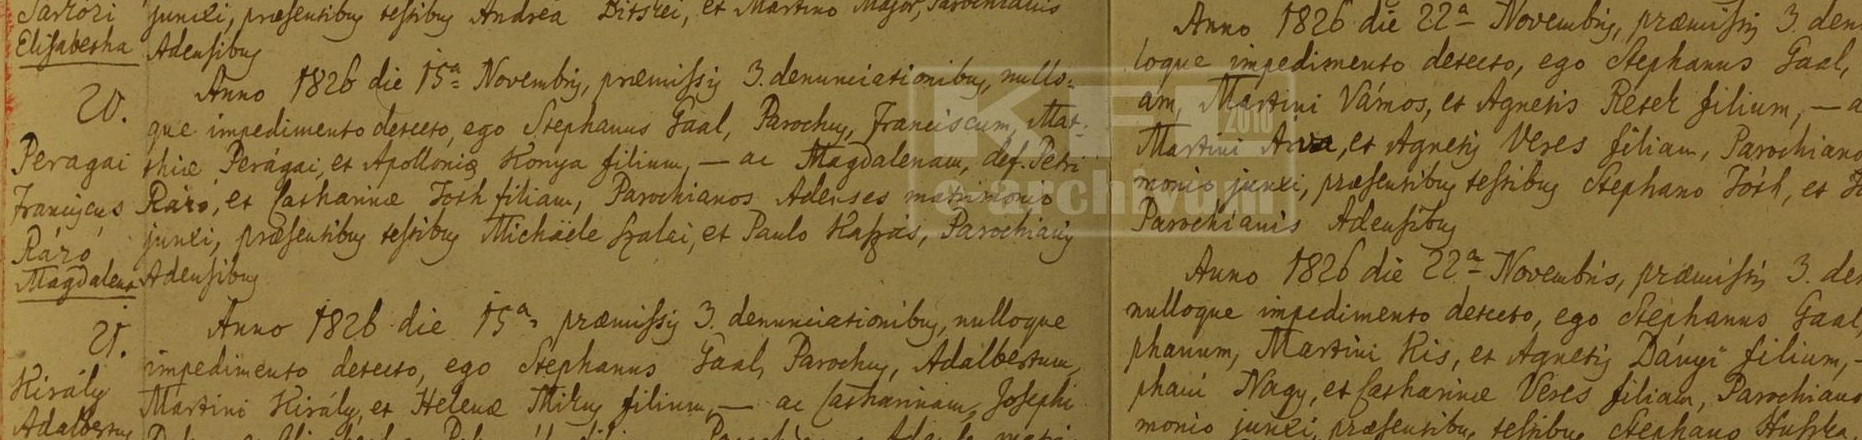 Sartori
Elisabetha
junxi, præsentibus testibus Andrea Ditskei, et Martino Major, Parochianis
Adensibus
20.
Peragai
Franciscus
Ráró
Magdalena
Anno 1826 die 15ª Novembris, præmissis 3. denunciationibus, nullo=
que impedimento detecto, ego Stephanus Gaal, Parochus, Franciscum, Mat=
thiæ Perágai, et Apolloniæ Konya filium, — ac Magdalenam, def. Petri
Ráró, et Catharinæ Toth filiam, Parochianos Adenses matrimonio
junxi, præsentibus testibus Michaële Szalai, et Paulo Kaszás, Parochianis
Adensibus
21.
Király
Adalbertus
Anno 1826 die 15ª, præmissis 3. denunciationibus, nulloque
impedimento detecto, ego Stephanus Gaal, Parochus, Adalbertum,
Martini Király, et Helenæ Mikus filium, — ac Catharinam, Josephi
Anno 1826 die 22ª Novembris, præmissis 3. den
loque impedimento detecto, ego Stephanus Gaal,
am, Martini Vámos, et Agnetis Retek filium, — a
Martini et Agnetis Veres filiam, Parochiano
monio junxi, præsentibus testibus Stephano Tóth, et
Parochianis Adensibus
Anno 1826 die 22ª Novembris, præmissis 3. den
nulloque impedimento detecto, ego Stephanus Gaal,
phanum, Martini Kis, et Agnetis Dányi filium, -
phani Nagy, et Catharinæ Veres filiam, Parochiano
monio junxi, præsentibus testibus Stephano Huszka
KFL
2010
e-archivum